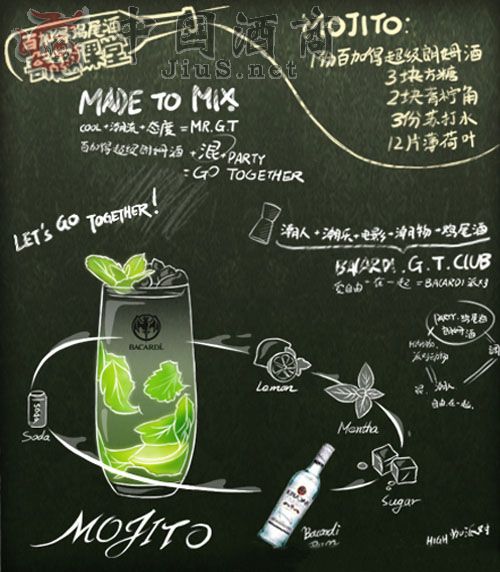 百加得鸡尾酒
课堂
中国酒商
JiuS.net
MOJITO:
1份百加得超级朗姆酒
3块方糖
2块青柠角
3份苏打水
12片薄荷叶
MADE TO MIX
COOL+潮流+态度=MR.G.T
百加得超级朗姆酒+混+PARTY
=GO TOGETHER
LET'S GO TOGETHER!
潮人+潮乐+电影+潮物+鸡尾酒
BACARDI.G.T.CLUB
爱自由在一起=BACARDI派对
PARTY.鸡尾酒
朗姆酒
混.潮人
自由.在一起.
BACARDI.
Lemon
Mentha
SODA
Soda
Sugar
Bacardi
Rum
MOJITO
HIGH